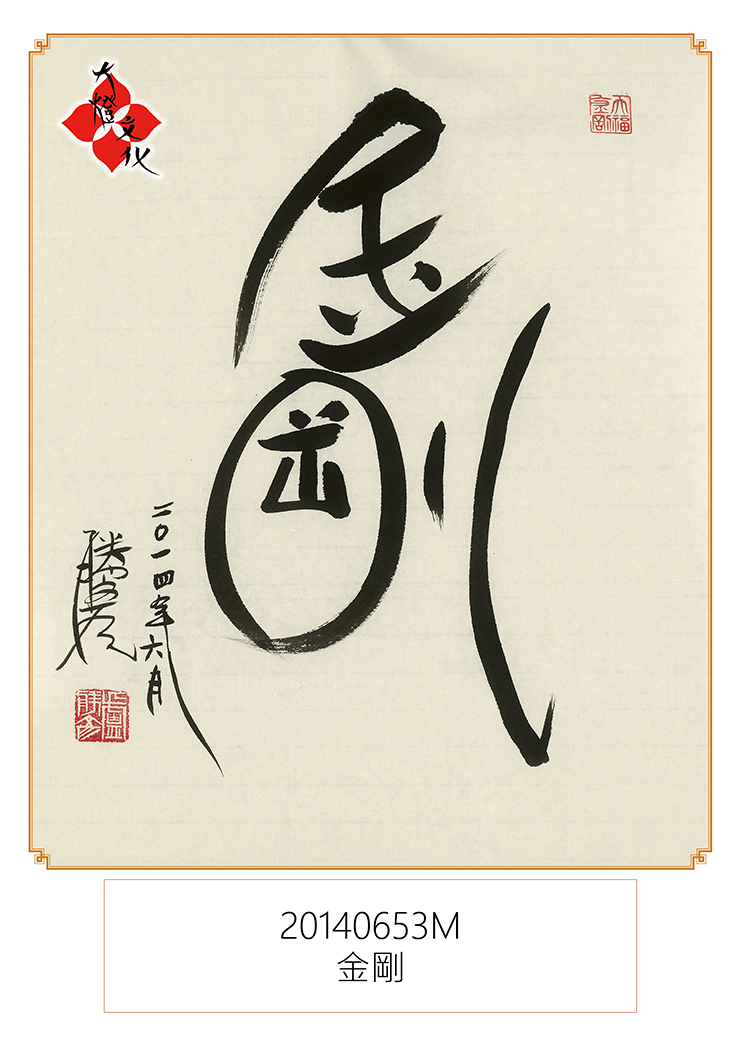 大燈文化
大福金剛
金剛
二〇一四年六月
勝彥
盧勝彥
20140653M
金剛